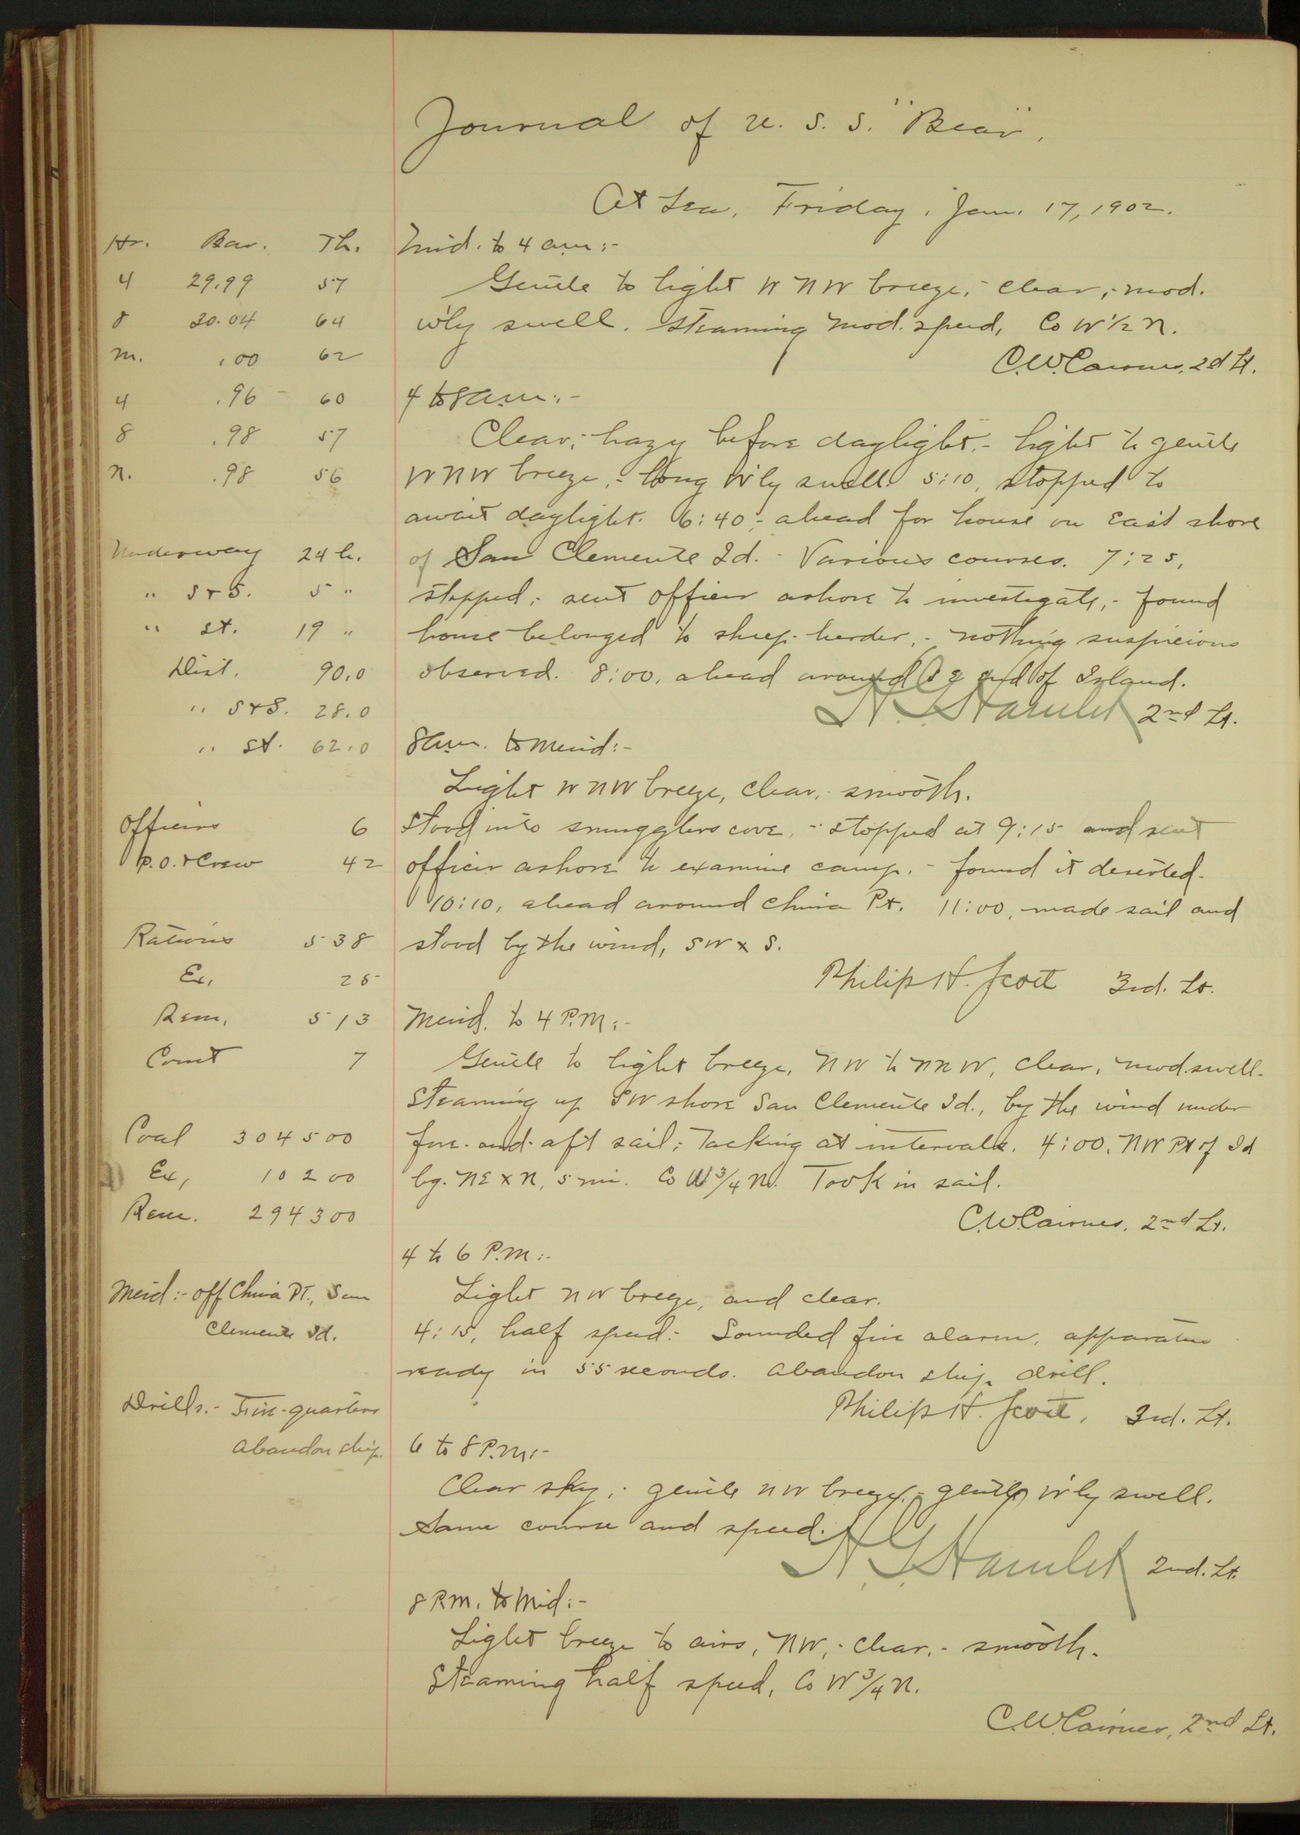 Journal of U. S. S. "Bear".
At Sea, Friday, Jan. 17, 1902.
Hr. Bar. Th.
4 29.99 57
8 30.04 64
m. .00 62
4 .96 60
8 .98 57
n. .98 56
Underway 24 h.
" S & S. 5 "
" St. 19 "
Dist. 90.0
" S & S. 28.0
" St. 62.0
Officers 6
P.O. & Crew 42
Rations 538
Ex. 25
Rem. 513
Comt 7
Coal 304500
Ex, 10200
Rem. 294300
Merid:- off China Pt., San
Clemente Id.
Drills:- Fire-quarters
Abandon ship.
Mid. to 4 am:-
Gentle to light W N W breeze,- clear,- mod.
W'ly swell. Steaming mod. speed, Co W ½ N.
C.W. Cairnes, 2d Lt.
4 to 8 a.m.:-
Clear,- hazy before daylight.- light to gentle
W N W breeze,- long W'ly swell. 5:10, stopped to
await daylight. 6:40,- ahead for house on East shore
of San Clemente Id.- Various courses. 7:25,
stopped,- sent officer ashore to investigate,- found
house belonged to sheep-herder,- nothing suspicious
observed. 8:00, ahead around S E end of Island.
H. G. Hamlet 2nd Lt.
8 am. to merid:-
Light W N W breeze, clear, smooth.
Stood into smugglers cove,- stopped at 9:15 and sent
officer ashore to examine camp,- found it deserted.
10:10, ahead around China Pt. 11:00, made sail and
stood by the wind, SW x S.
Philip H. Scott 3rd. Lt.
Merid. to 4 P.M:-
Gentle to light breeze, NW to NNW, clear, mod swell.
Steaming up SW shore San Clemente Id., by the wind under
fore-and-aft sail; Tacking at intervals. 4:00, NW Pt of Id
bg. NE x N, 5 mi. Co W ¾ N. Took in sail.
C.W. Cairnes, 2nd Lt.
4 to 6 P.M:-
Light NW breeze, and clear.
4:15, half speed.- Sounded fire alarm, apparatus
ready in 55 seconds. Abandon ship drill.
Philip H. Scott, 3rd. Lt.
6 to 8 P.M:-
Clear sky,- gentle NW breeze,- gentle W'ly swell.
Same course and speed.
H. G. Hamlet 2nd. Lt.
8 P.M. to Mid:-
Light breeze to airs, NW,- clear,- smooth.
Steaming half speed, Co W ¾ N.
C.W. Cairnes, 2nd Lt.